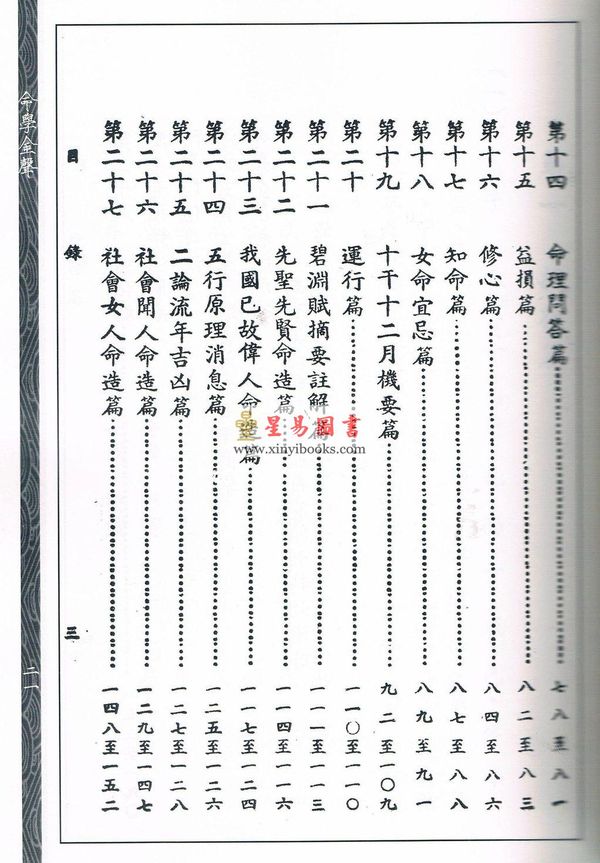 第十四 命理問答篇……七八至八一
第十五 益損篇……八二至八三
第十六 修心篇……八四至八六
第十七 知命篇……八七至八八
第十八 女命宜忌篇……八九至九一
第十九 十干十二月機要篇……九二至一〇九
第二十 運行篇……一一〇至一一〇
第二十一 碧淵賦摘要註解篇……一一一至一一三
第二十二 先聖先賢命造篇……一一四至一一六
第二十三 我國已故偉人命造篇……一一七至一二四
第二十四 五行原理消息篇……一二五至一二六
第二十五 二論流年吉凶篇……一二七至一二八
第二十六 社會聞人命造篇……一二九至一四七
第二十七 社會女人命造篇……一四八至一五二
目錄 三
命學金聲 二一
星易圖書
www.xinyibooks.com